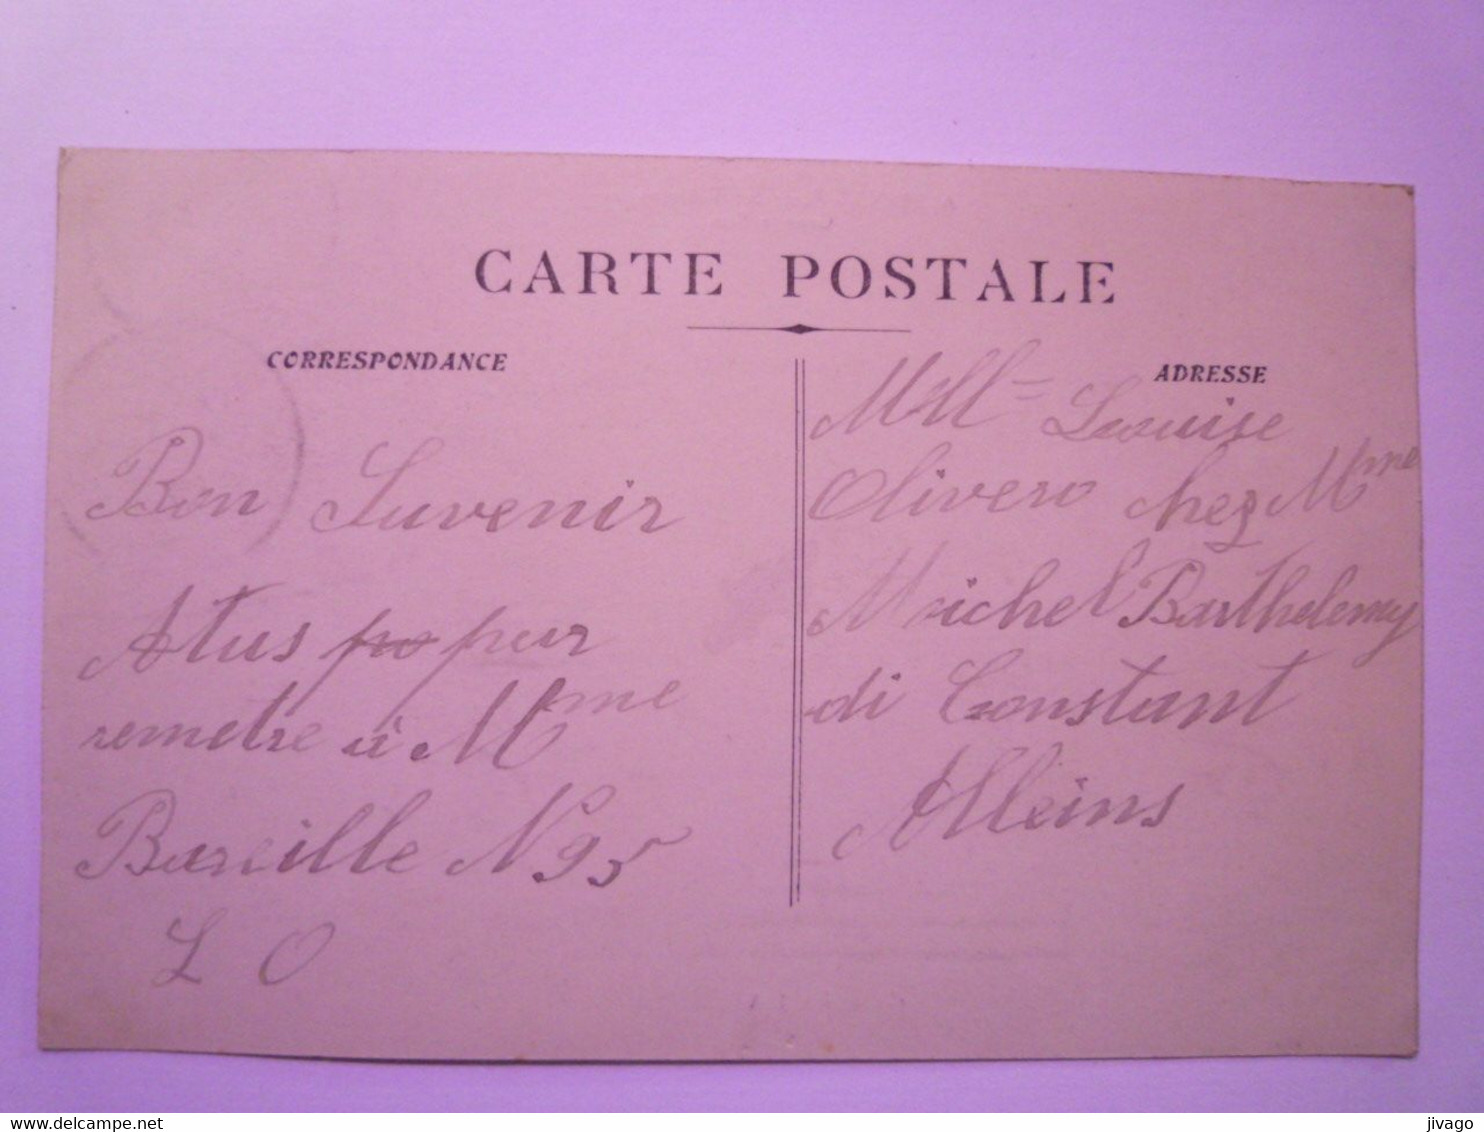 CARTE POSTALE
CORRESPONDANCE
Bon Suvenir
Atus po pur
remetre a Mme
Bareille N 95
L O
ADRESSE
Mlle Louise
Olivero chez Mme
Michel Barthelemy
di Constant
Alleins
www.delcampe.net
jivago